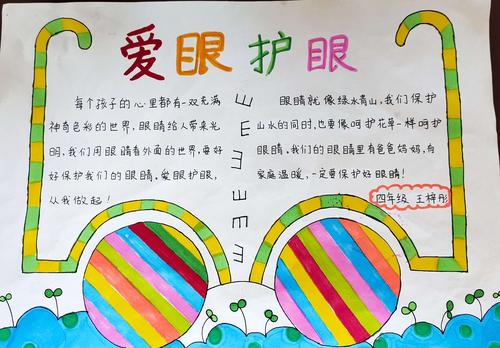 爱眼护眼
每个孩子的心里都有一双充满
神奇色彩的世界,眼睛给人带来光
明,我们用眼睛看外面的世界,要好
好保护我们的眼睛。爱眼护眼,
从我做起!
眼睛就像绿水青山,我们保护
山水的同时,也要像呵护花草一样呵护
眼睛。我们的眼睛里有爸爸妈妈,有
家庭温暖,一定要保护好眼睛!
四年级 王梓彤